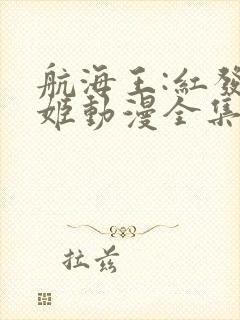 航海王:紅發
姬動漫全集
拉兹